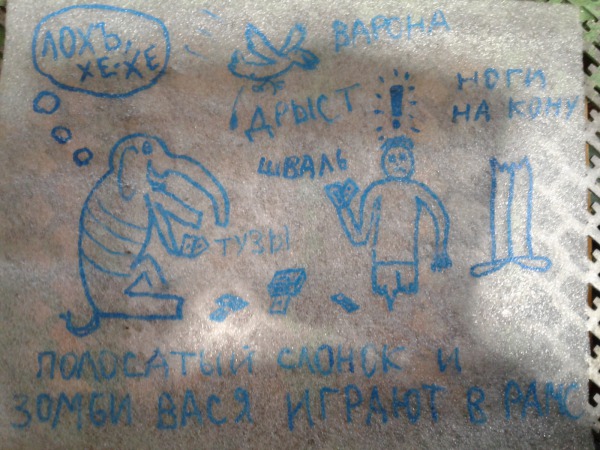 ЛОХЪ,
ХЕ-ХЕ
ВАРОНА
ДРЫСТ
НОГИ
НА КОНУ
ШВАЛЬ
ТУЗЫ
ПОЛОСАТЫЙ СЛОНОК И
ЗОМБИ ВАСЯ ИГРАЮТ В РАМС